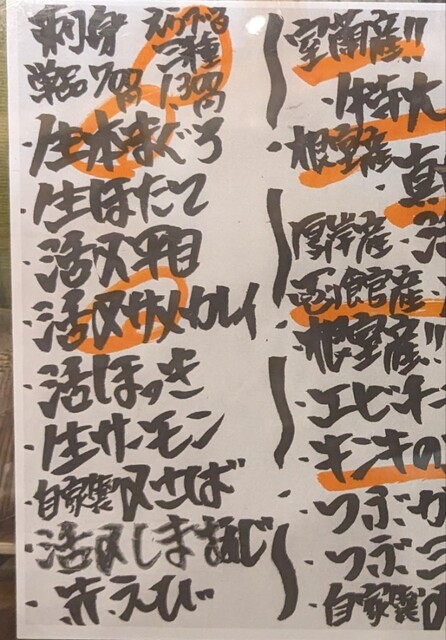 刺身
単品 70円
二種
1,30円
・生本まぐろ
・生ほたて
・活〆平目
・活〆サメカレイ
・活ほっき
・生サーモン
・自家製〆さば
・活〆しま
・赤えび
室蘭産!!
・特大
・根室産
真
厚岸産
函館産
・根室産!!
・エビ
・キンキの
・つぶ
・つぶ
・自家製